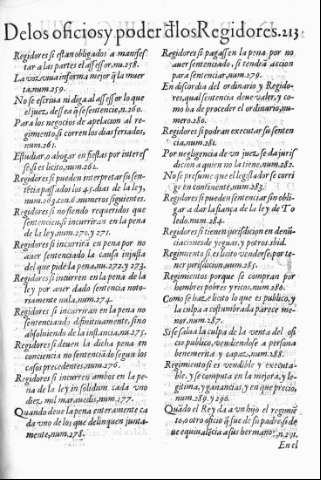 De los oficios y poder đ los Regidores. 213
Regidores si estan obligados a manifes
tar a las partes el assessor, nu. 258.
La voz viua informa mejor q̃ la muer
ta, num. 259.
No se escriua ni diga al assessor lo que
el juez, dessea q̃ se sentencie, n. 260.
Para los negocios de apelacion al re-
gimento si corren los dias feriados,
num. 261.
Estudiar, o abogar en fiestas por interes
se si es licito, num. 262.
Regidores si pueden interpretar su sen-
tẽcia passados los 45. dias de la ley,
num. 263. con 6. numeros siguientes.
Regidores si no siendo requeridos que
sentencien, si incurriran en la pena
de la ley, num. 270. y 271.
Regidores si incurrirá en pena por no
auer sentenciado la causa injusta
del que pide la pena, nu. 272. y 273.
Regidores si incurren en la pena de la
ley por auer dado sentencia noto-
riamente nula, num. 274.
Regidores si incurriran en la pena no
sentenciando difinitiuamente, sino
absoluiendo de la instancia, n. 275.
Regidores si deuen la dicha pena en
conciencia no sentenciãdo segun los
casos precedentes, num. 276.
Regidores si incurren ambos en la pe-
na de la ley in solidum cada vno
diez mil marauedis, num. 277.
Quando deue la pena enteramente ca
da vno de los que delinquen junta-
mente, num. 278.
Regidores si pagassen la pena por no
auer sentenciado, si tendrã accion
para sentenciar, num. 279.
En discordia del ordinario y Regido-
res, qual sentencia deue valer, y co-
mo ha de proceder el ordinario, nu-
mero 280.
Regidores si podran executar su senten
cia, num. 281.
Por negligencia de vn juez se da jurisf
dicion a quien no la tiene, num. 282.
No se presume que el legislador se corri
ge en continente, num. 283.
Regidores si pueden sentenciar sin obli-
gar a dar la fiança de la ley de To
ledo, num. 284.
Regidores si tienen jurisdicion en denũ-
ciaciones de yeguas, y potros, ibid.
Regimento si es licito venderse, por te-
ner jurisdicion, num. 285.
Regimentos porque se compran por
hombres pobres y ricos, num. 286.
Como se haze licito lo que es publico, y
la culpa acostumbrada parece me-
nor, num. 287.
Si se salua la culpa de la venta del ofi
cio publico, vendiendose a persona
benemerita y capaz, num. 288.
Regimento si es vendible y executa-
ble, y se computa en la mejora, y le-
gitima, y ganancias, y en que precio,
num. 289. y 290.
Quãdo el Rey da a vn hijo el regimiẽ
to, o otro oficio q̃ fue de su padre, si de
ue equiualẽcia a sus hermanos, n. 291.
En el